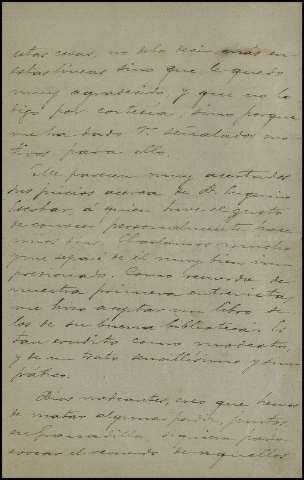 estas cosas, no debo decir más en
estas líneas sino que le quedo
muy agradecido, y que no lo
digo por cortesía, sino porque
me ha dado Vd. señalados mo-
tivos para ello.
Me parecen muy acertados
sus juicios acerca de D.
Escobar, á quien tuve el gusto
de conocer personalmente hace
unos días. Charlamos mucho
y me separé de él muy bien im-
presionado. Como recuerdo de
nuestra primera entrevista,
me hizo aceptar un libro de
los de su buena biblioteca. Es
tan erudito como modesto,
y de un trato sencillísimo y sim-
pático.
Dios mediante, creo que hemos
de matar alguna perdiz, juntos,
en Granadilla, siquiera para
evocar el recuerdo de aquellos